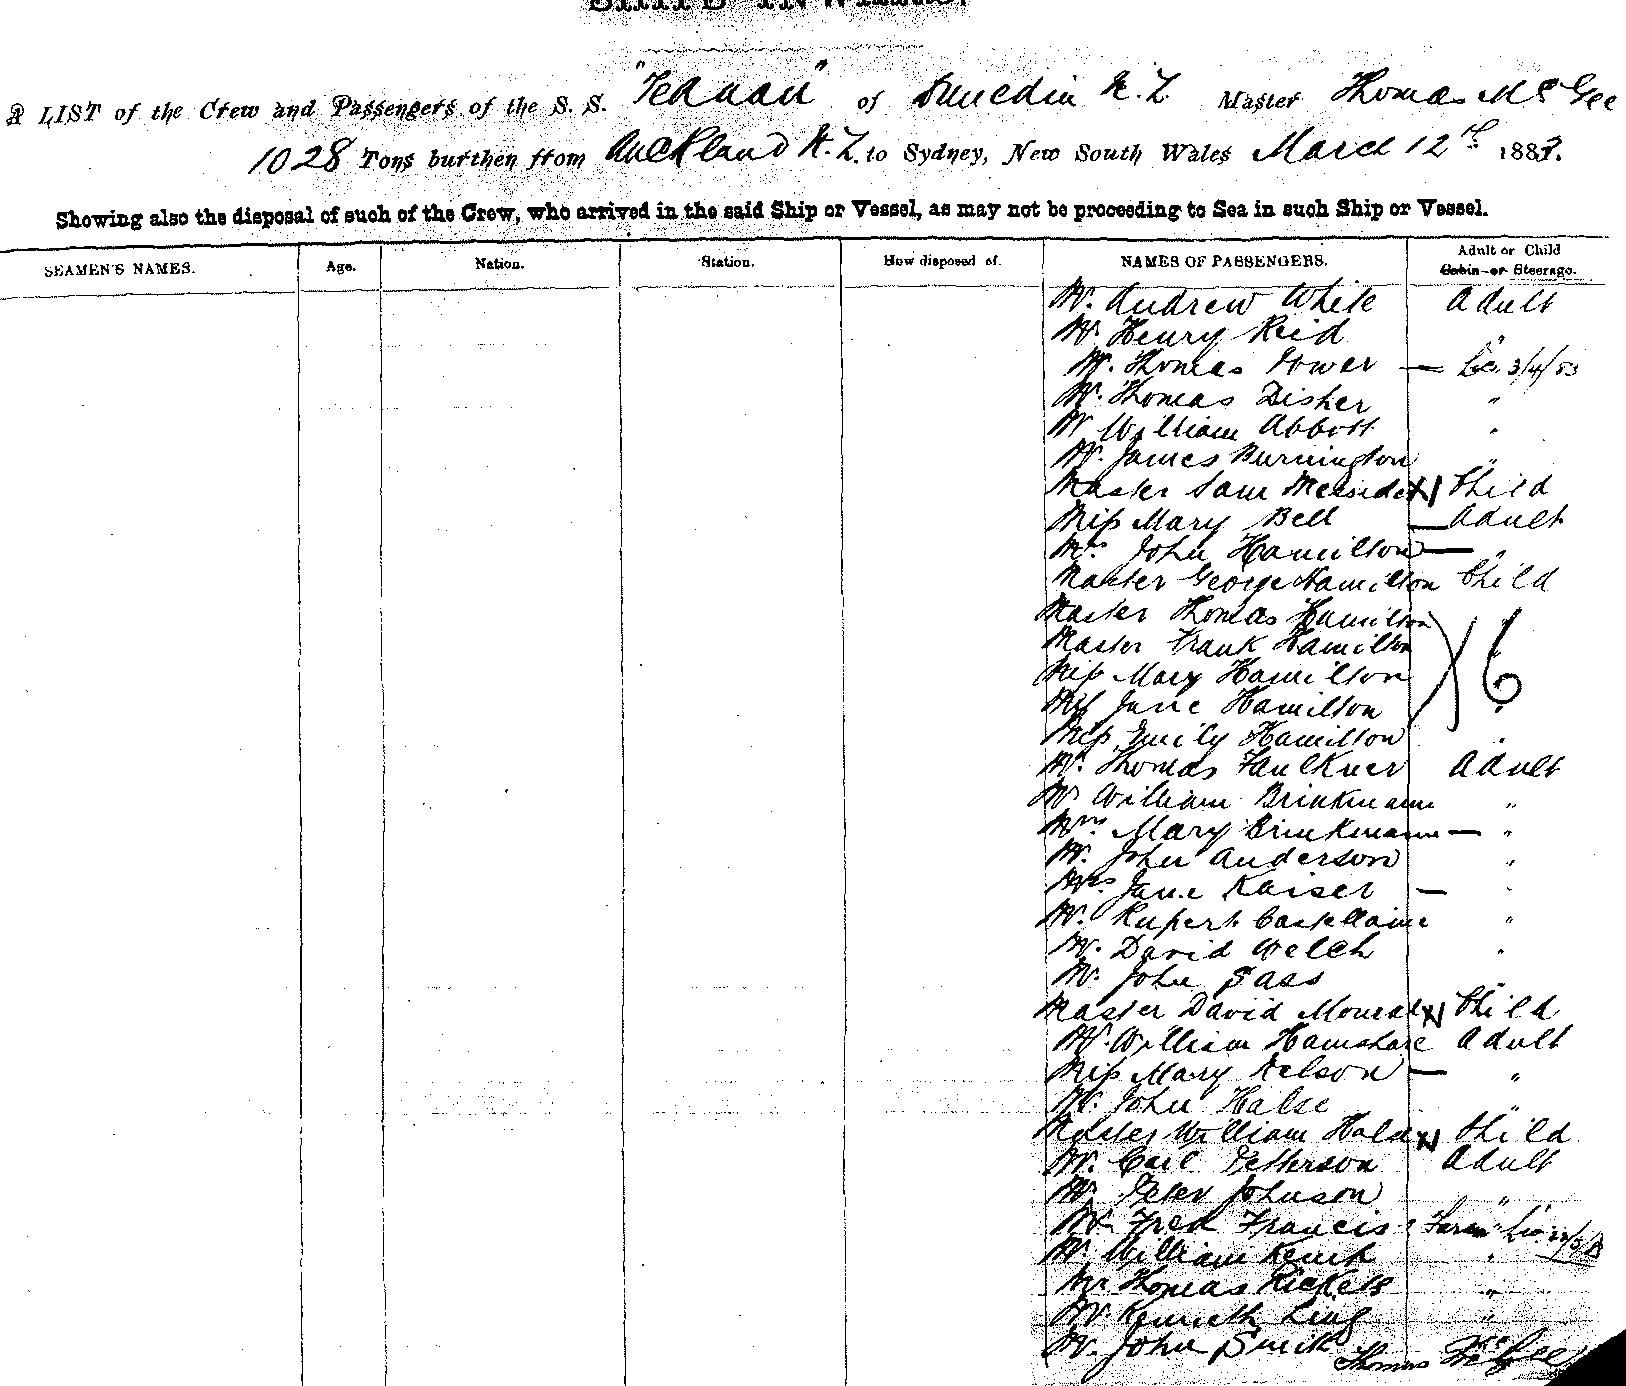 SHIPS INWARDS.
A LIST of the Crew and Passengers of the S. S. "Te Anau" of Dunedin N.Z. Master Thomas McGee
1028 Tons burthen from Auckland N.Z. to Sydney, New South Wales March 12th 1883.
Showing also the disposal of such of the Crew, who arrived in the said Ship or Vessel, as may not be proceeding to Sea in such Ship or Vessel.
SEAMEN'S NAMES. Age. Nation. Station. How disposed of. NAMES OF PASSENGERS. Adult or Child
Cabin or Steerage.
Mr. Andrew White Adult
Mr. Henry Reid "
Mr. Thomas Power — 3/4/83
Mr. Thomas Disher "
Mr William Abbott "
Mr. James Burnington "
Master Sam Child
Miss Mary Bell — Adult
Mrs John Hamilton — "
Master George Hamilton Child
Master Thomas Hamilton "
Master Frank Hamilton
Miss Mary Hamilton 6
Miss Jane Hamilton "
Miss Emily Hamilton "
Mr. Thomas Faulkner Adult
Mr William Brinkmann "
Mrs Mary Brinkmann — "
Mr. John Anderson "
Mrs Jane Kaiser — "
Mr. Rupert Castellaine "
Mr. David Welch "
Mr. John Sass "
Master David Child
Mr. William Hamshare Adult
Miss Mary Nelson — "
Mr. John Halse "
Master William Child
Mr. Carl Petterson Adult
Mr. Peter Johnson "
Mr. Fred Francis "
Mr William "
Mr Thomas Rickets "
Mr Kenneth King "
Mr. John Smith
Thomas McGee